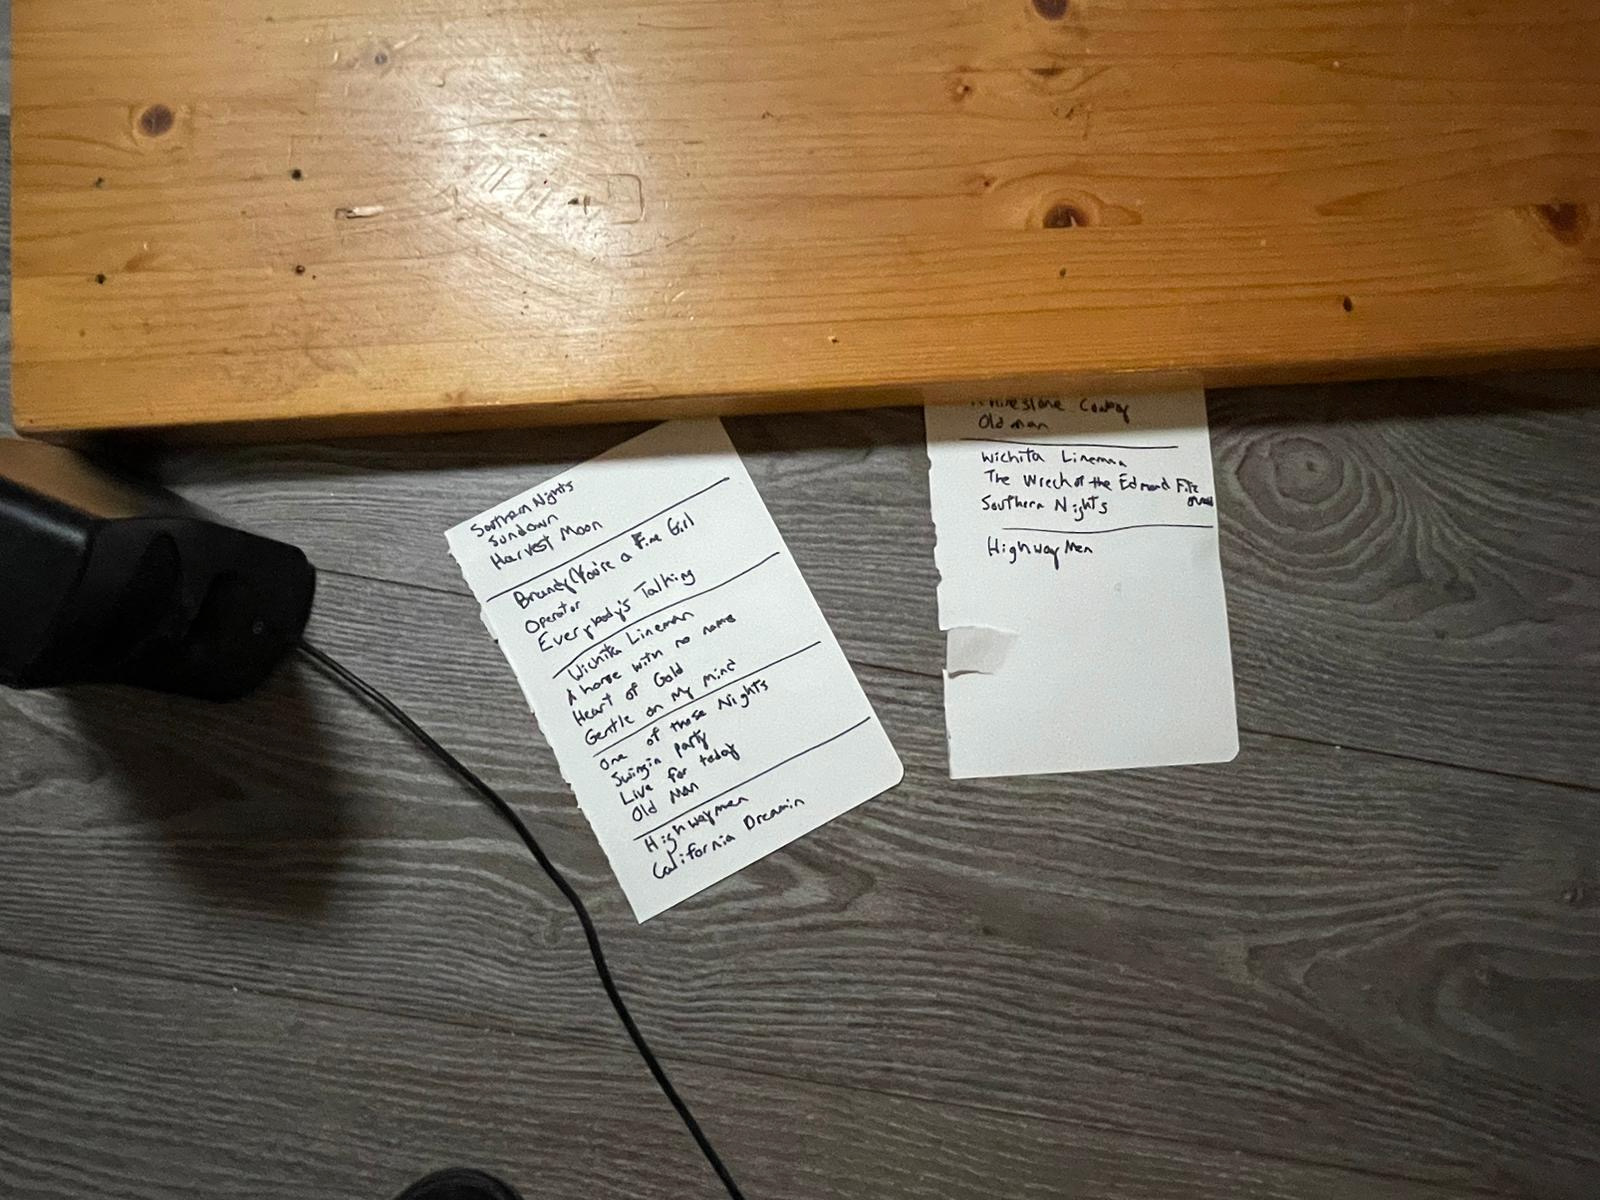 Southern Nights
Sundown
Harvest Moon
Brandy (You're a Fine Girl
Operator
Everybody's Talking
Wichita Lineman
A horse with no name
Heart of Gold
Gentle on My Mind
One of those Nights
Swingin party
Live for today
Old Man
Highwaymen
California Dreamin
Rhinestone Cowboy
Old man
Wichita Lineman
The Wreck of the Edmond Fitz
Southern Nights
Highway Men